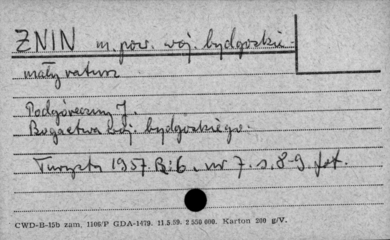 ŻNIN m. pow. woj. bydgoskie
mały ratusz
Podgóreczny J.
Bogactwa woj. bydgoskiego.
Turysta 1957. R: 6. nr 7. s. 8-9. fot.
CWD-B-15b zam. 1106/P GDA-1479. 11.5.59. 2 550 000. Karton 200 g/V.